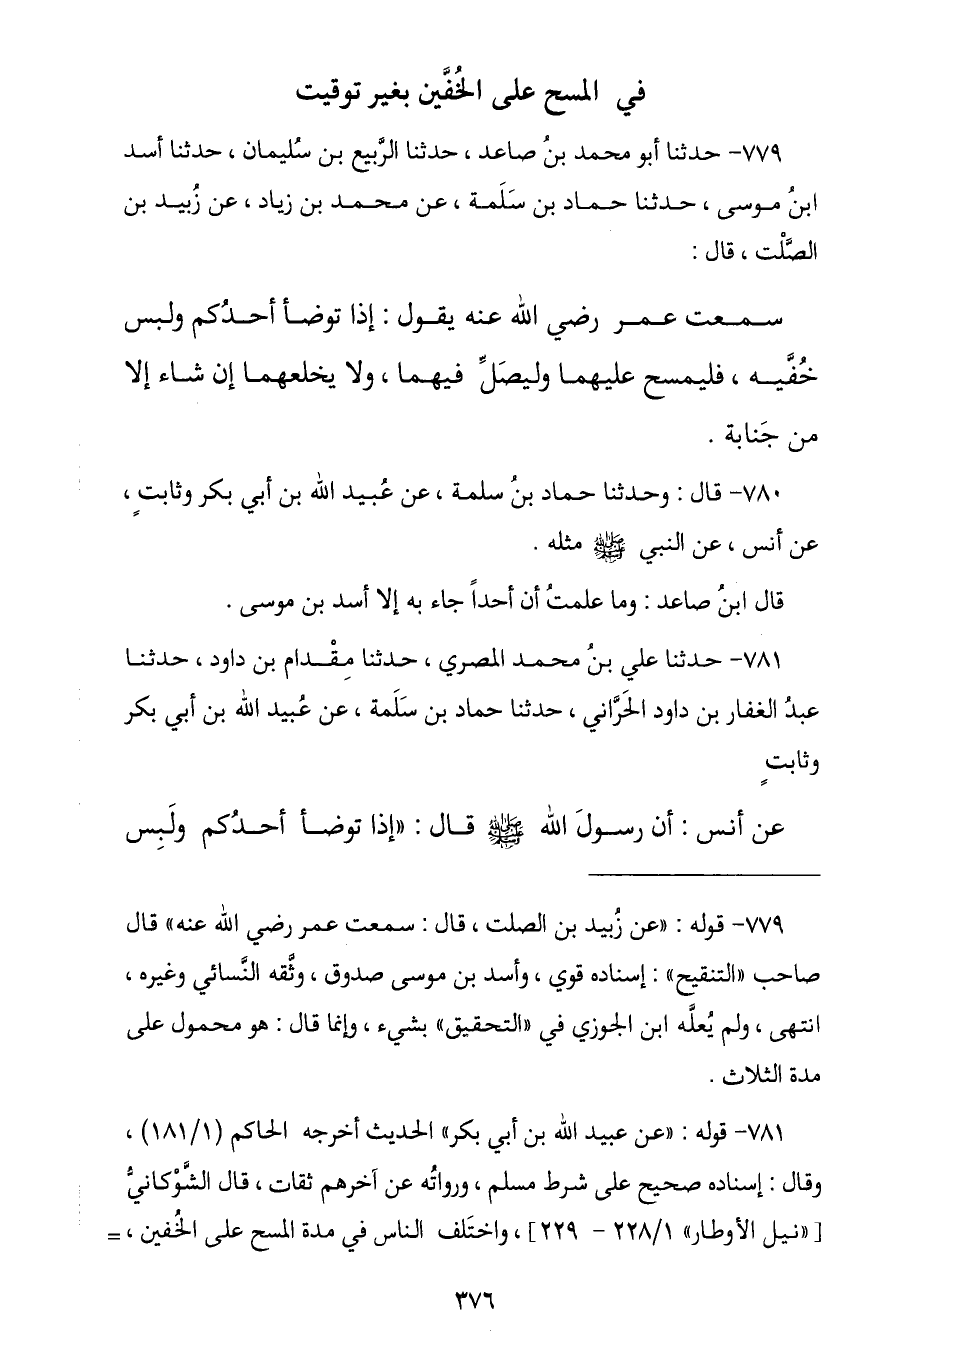 في المسح على الخُفَّين بغير توقيت
٧٧٩- حدثنا أبو محمد بنُ صاعد ، حدثنا الرَّبيع بن سُليمان ، حدثنا أسد
ابنُ موسى ، حدثنا حماد بن سَلَمة ، عن محمد بن زياد ، عن زُبيد بن
الصَّلْت ، قال :
سمعت عمر رضي الله عنه يقول : إذا توضأ أحدُكم ولبس
خُفَّيه ، فليمسح عليهما وليصَلِّ فيهما ، ولا يخلعهما إن شاء إلا
من جَنابة .
٧٨٠- قال : وحدثنا حماد بنُ سلمة ، عن عُبيد الله بن أبي بكر وثابتٍ ،
عن أنس ، عن النبي ﷺ مثله .
قال ابنُ صاعد : وما علمتُ أن أحداً جاء به إلا أسد بن موسى .
٧٨١- حدثنا علي بنُ محمد المصري ، حدثنا مِقْدام بن داود ، حدثنا
عبدُ الغفار بن داود الحَرَّاني ، حدثنا حماد بن سَلَمة ، عن عُبيد الله بن أبي بكر
وثابتٍ
عن أنس : أن رسولَ الله ﷺ قال : «إذا توضأ أحدُكم ولَبِس
٧٧٩- قوله : «عن زُبيد بن الصلت ، قال : سمعت عمر رضي الله عنه» قال
صاحب «التنقيح» : إسناده قوي ، وأسد بن موسى صدوق ، وثَّقه النَّسائي وغيره ،
انتهى ، ولم يُعلَّه ابن الجوزي في «التحقيق» بشيء ، وإنما قال : هو محمول على
مدة الثلاث .
٧٨١- قوله : «عن عبيد الله بن أبي بكر» الحديث أخرجه الحاكم (١/١٨١) ،
وقال : إسناده صحيح على شرط مسلم ، ورواتُه عن آخرهم ثقات ، قال الشَّوْكانيُّ
[«نيل الأوطار» ١/٢٢٨ - ٢٢٩] ، واختَلف الناس في مدة المسح على الخُفين ، =
٣٧٦